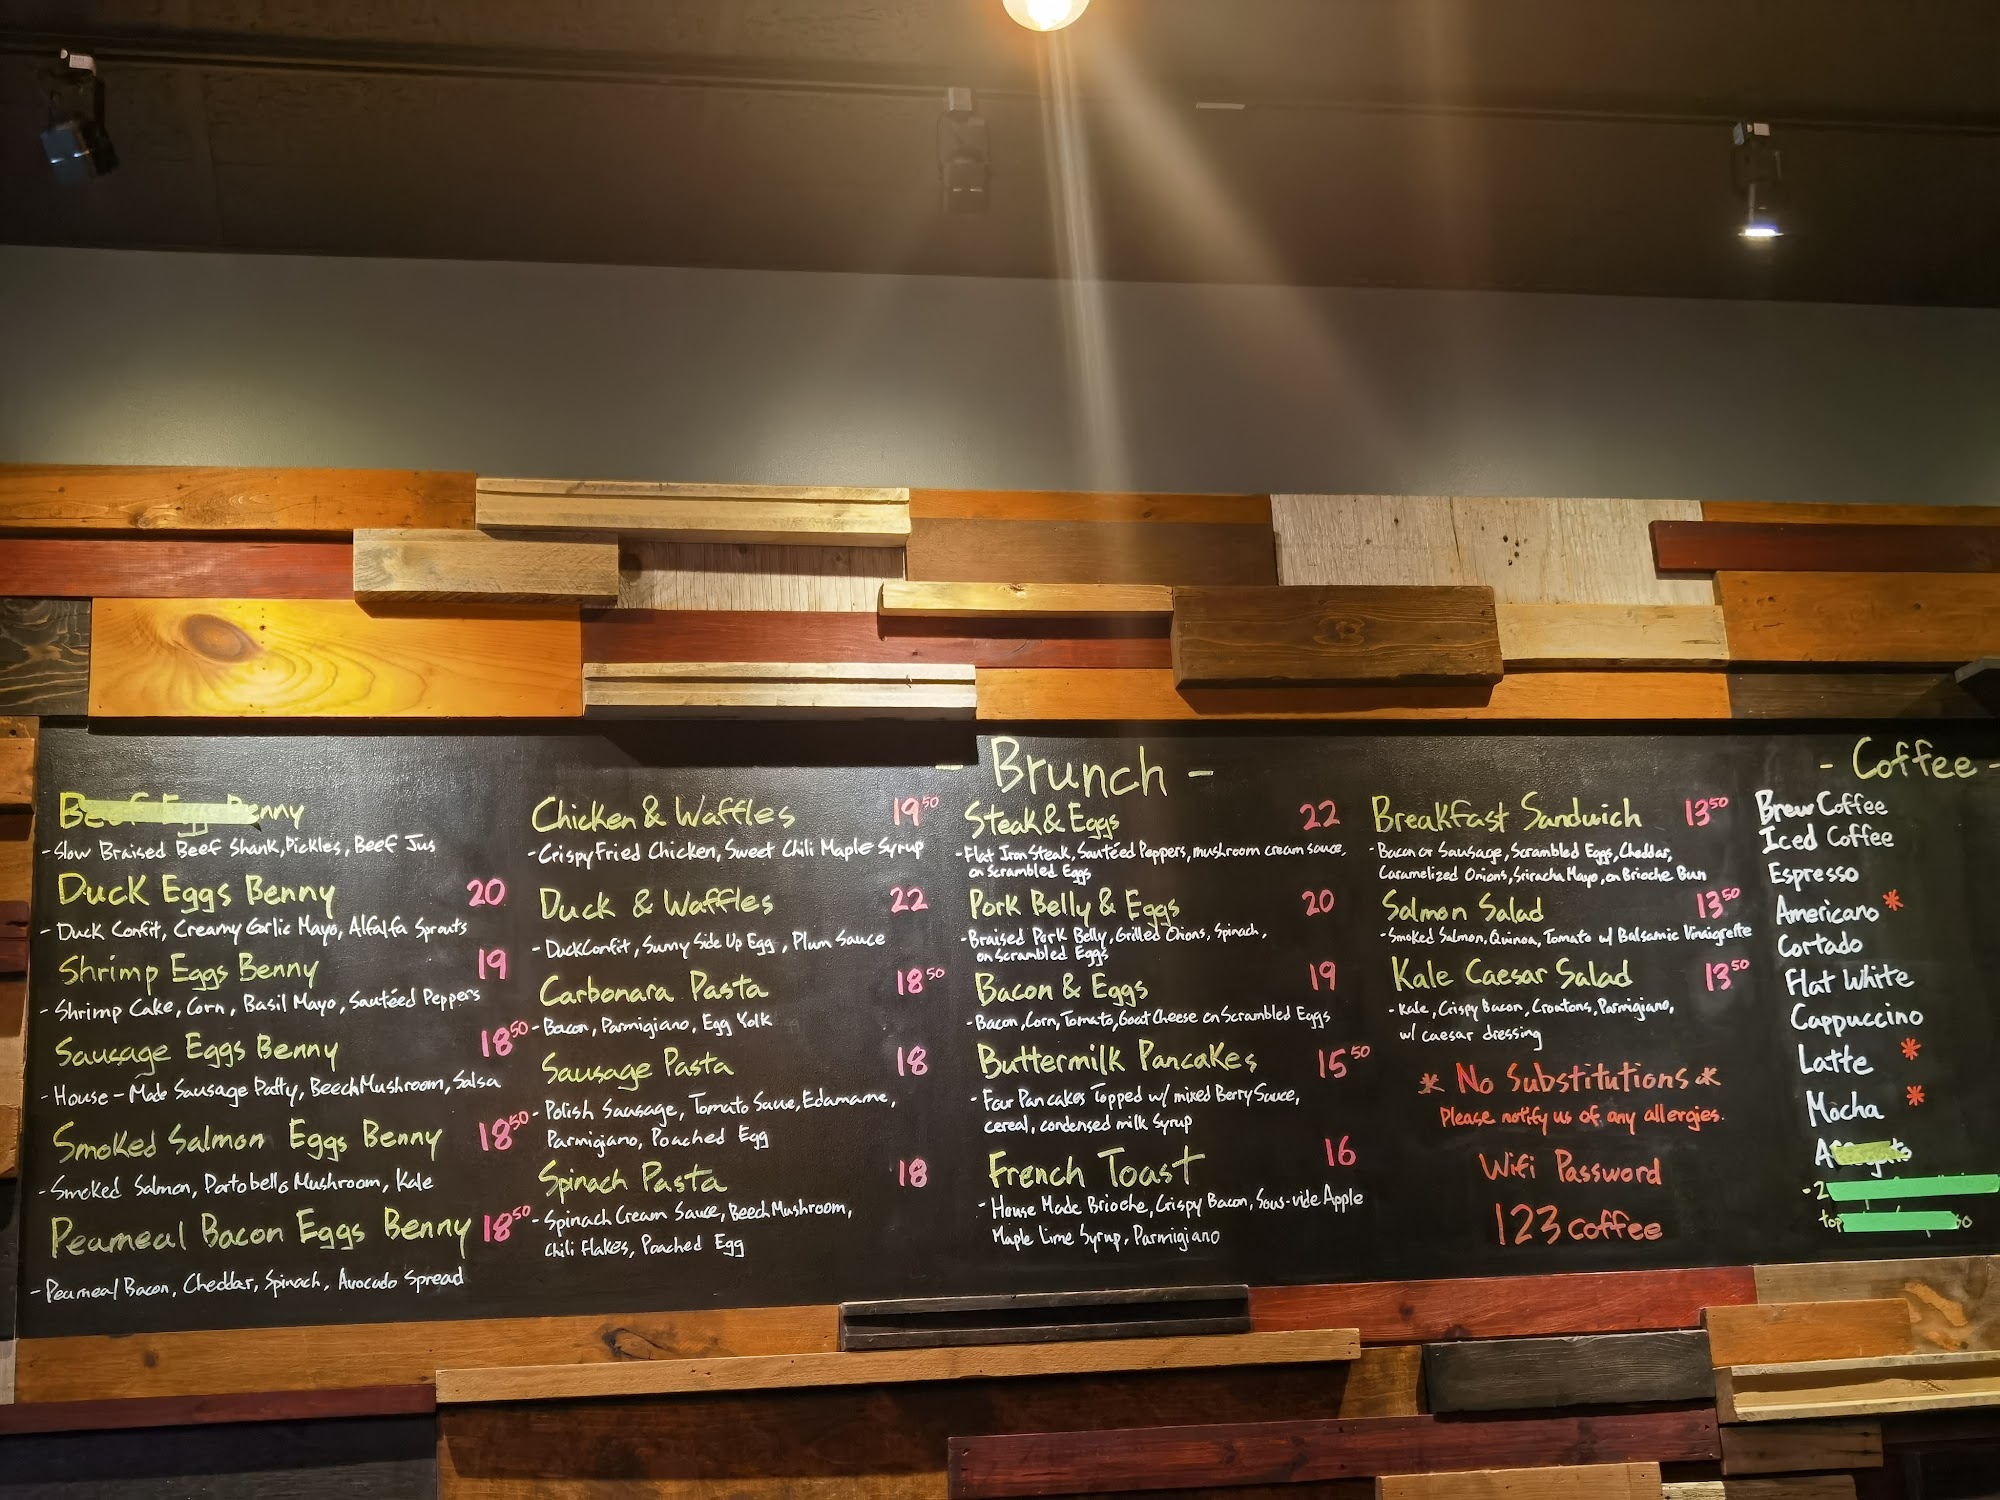 - Brunch -
Beef Eggs Benny
- Slow Braised Beef Shank, Pickles, Beef Jus
Duck Eggs Benny 20
- Duck Confit, Creamy Garlic Mayo, Alfalfa Sprouts
Shrimp Eggs Benny 19
- Shrimp Cake, Corn, Basil Mayo, Sautéed Peppers
Sausage Eggs Benny 18 50
- House-Made Sausage Patty, Beech Mushroom, Salsa
Smoked Salmon Eggs Benny 18 50
- Smoked Salmon, Portobello Mushroom, Kale
Peameal Bacon Eggs Benny 18 50
- Peameal Bacon, Cheddar, Spinach, Avocado Spread
Chicken & Waffles 19 50
- Crispy Fried Chicken, Sweet Chili Maple Syrup
Duck & Waffles 22
- Duck Confit, Sunny Side Up Egg, Plum Sauce
Carbonara Pasta 18 50
- Bacon, Parmigiano, Egg Yolk
Sausage Pasta 18
- Polish Sausage, Tomato Sauce, Edamame,
Parmigiano, Poached Egg
Spinach Pasta 18
- Spinach Cream Sauce, Beech Mushroom,
Chili Flakes, Poached Egg
Steak & Eggs 22
- Flat Iron Steak, Sautéed Peppers, mushroom cream sauce,
on Scrambled Eggs
Pork Belly & Eggs 20
- Braised Pork Belly, Grilled Onions, Spinach,
on Scrambled Eggs
Bacon & Eggs 19
- Bacon, Corn, Tomato, Goat Cheese on Scrambled Eggs
Buttermilk Pancakes 15 50
- Four Pancakes Topped w/ mixed Berry Sauce,
cereal, condensed milk Syrup
French Toast 16
- House Made Brioche, Crispy Bacon, Sous-vide Apple
Maple Lime Syrup, Parmigiano
Breakfast Sandwich 13 50
- Bacon or Sausage, Scrambled Eggs, Cheddar,
Caramelized Onions, Sriracha Mayo, on Brioche Bun
Salmon Salad 13 50
- Smoked Salmon, Quinoa, Tomato w/ Balsamic Vinaigrette
Kale Caesar Salad 13 50
- Kale, Crispy Bacon, Croutons, Parmigiano,
w/ caesar dressing
* No Substitutions *
Please notify us of any allergies.
Wifi Password
123coffee
- Coffee -
Brew Coffee
Iced Coffee
Espresso
Americano *
Cortado
Flat White
Cappuccino
Latte *
Mocha *
Affogato
- 2
top